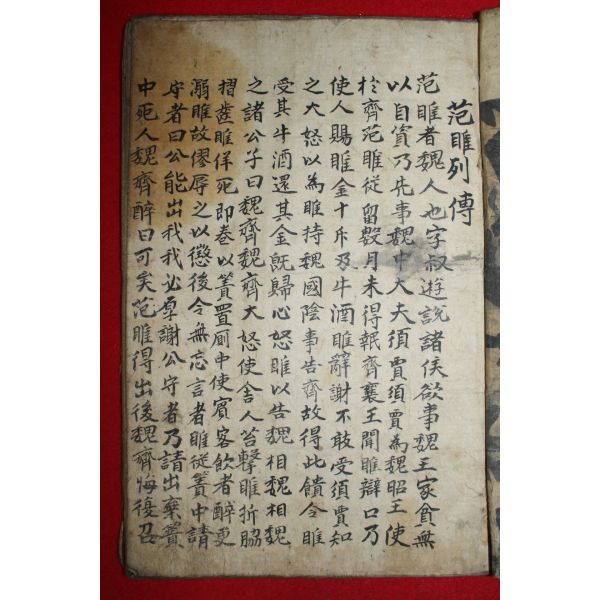 范睢列傳
范睢者魏人也字叔遊說諸侯欲事魏王家貧無
以自資乃先事魏中大夫須賈須賈為魏昭王使
於齊范睢從留數月未得報齊襄王聞睢辯口乃
使人賜睢金十斤及牛酒睢辭謝不敢受須賈知
之大怒以為睢持魏國陰事告齊故得此饋令睢
受其牛酒還其金旣歸心怒睢以告魏相魏相魏
之諸公子曰魏齊魏齊大怒使舍人笞擊睢折脇
摺齒睢佯死即卷以簀置厠中使賓客飲者醉更
溺睢故僇辱之以懲後令無忘言者睢從簀中請
守者曰公能出我我必厚謝公守者乃請出棄簀
中死人魏齊醉曰可矣范睢得出後魏齊悔復召